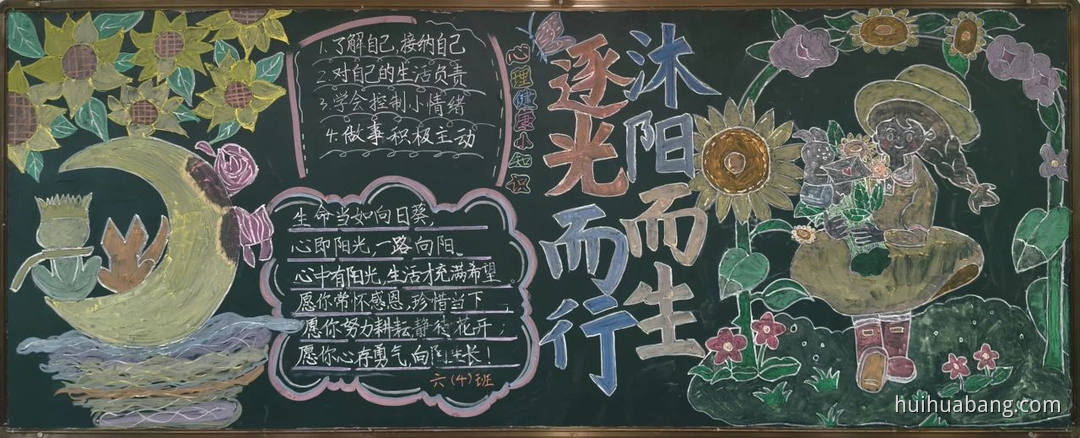 1.了解自己,接纳自己
2.对自己的生活负责
3.学会控制小情绪
4.做事积极主动
心理健康小知识
沐阳而生
逐光而行
生命当如向日葵,
心即阳光,一路向阳。
心中有阳光,生活才充满希望
愿你常怀感恩,珍惜当下,
愿你努力耕耘,静待花开;
愿你心存勇气,向阳生长!
六(4)班
huihuabang.com